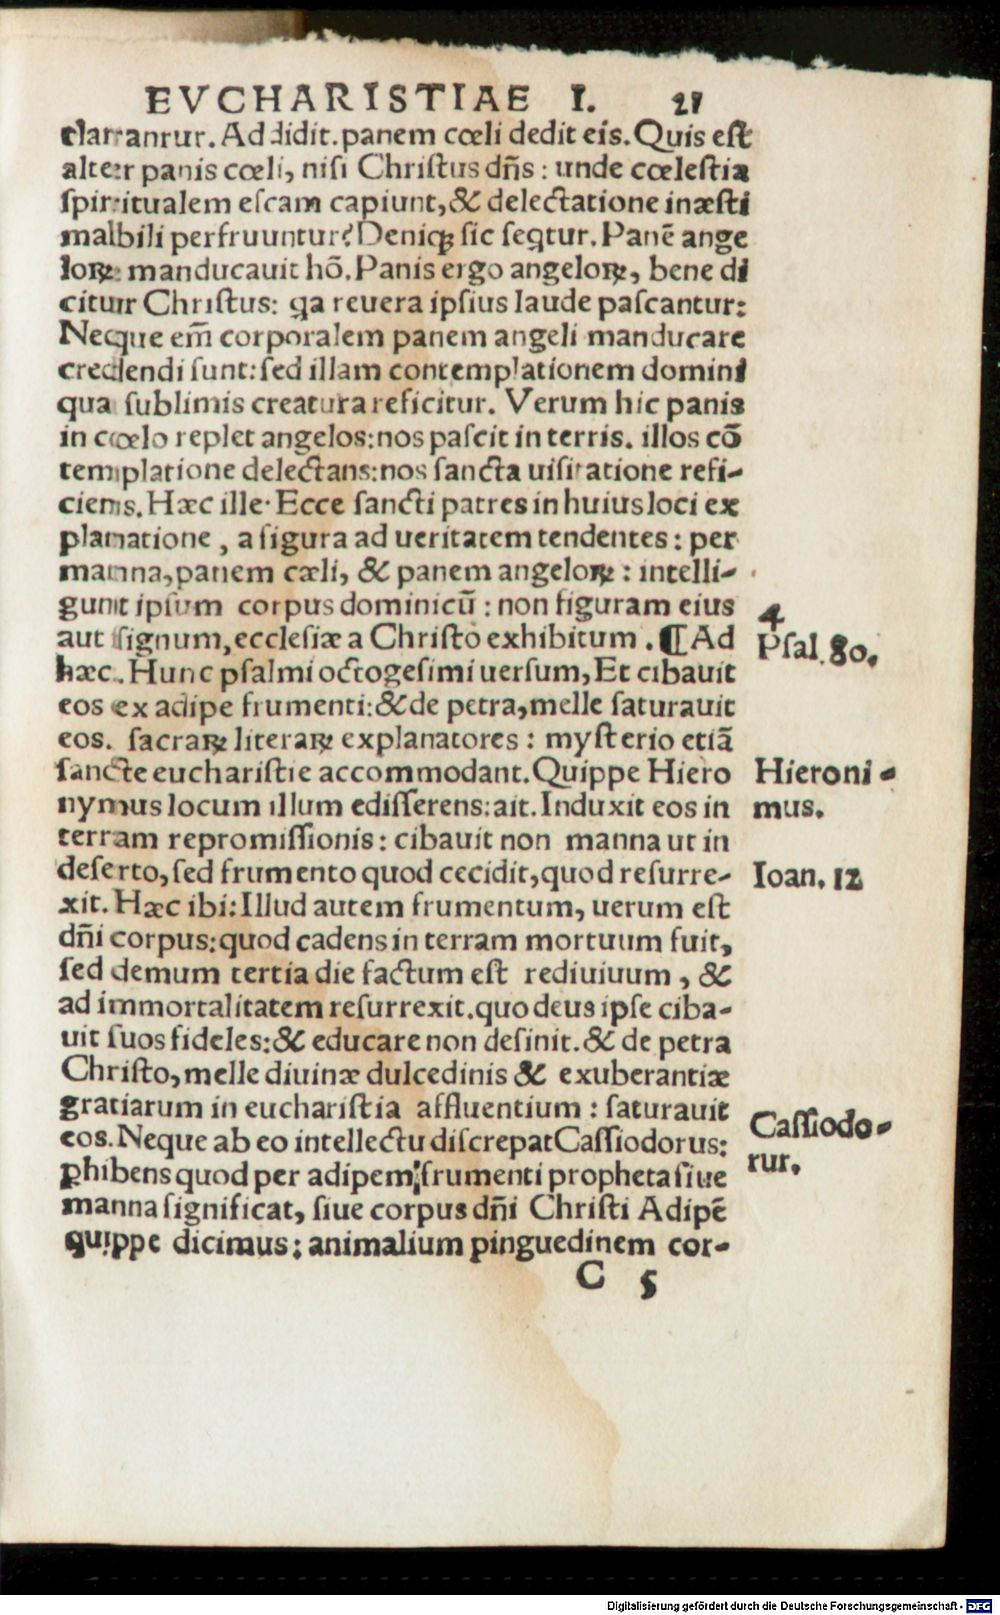 EVCHARISTIAE I. 21
clarantur. Addidit. panem cœli dedit eis. Quis est
alter panis cœli, nisi Christus dñs: unde cœlestia
spiritualem escam capiunt, & delectatione inæsti
mabili perfruuntur? Deniqꝫ sic seqtur. Panẽ ange
loꝝ manducauit hõ. Panis ergo angeloꝝ, bene di
citur Christus: qa reuera ipsius laude pascantur:
Neque em̃ corporalem panem angeli manducare
credendi sunt: sed illam contemplationem domini
qua sublimis creatura reficitur. Verum hic panis
in cœlo replet angelos: nos pascit in terris. illos cõ
templatione delectans: nos sancta uisitatione refi-
ciens. Hæc ille. Ecce sancti patres in huius loci ex
planatione, a figura ad ueritatem tendentes: per
manna, panem cæli, & panem angeloꝝ: intelli-
gunt ipsum corpus dominicũ: non figuram eius
aut signum, ecclesiæ a Christo exhibitum. ¶ Ad
hæc. Hunc psalmi octogesimi uersum, Et cibauit
eos ex adipe frumenti: & de petra, melle saturauit
eos. sacraꝝ literaꝝ explanatores: mysterio etiã
sancte eucharistie accommodant. Quippe Hiero
nymus locum illum edisserens: ait. Induxit eos in
terram repromissionis: cibauit non manna ut in
deserto, sed frumento quod cecidit, quod resurre-
xit. Hæc ibi: Illud autem frumentum, uerum est
dñi corpus: quod cadens in terram mortuum fuit,
sed demum tertia die factum est rediuiuum, &
ad immortalitatem resurrexit. quo deus ipse ciba-
uit suos fideles: & educare non desinit. & de petra
Christo, melle diuinæ dulcedinis & exuberantiæ
gratiarum in eucharistia affluentium: saturauit
eos. Neque ab eo intellectu discrepat Cassiodorus:
ꝓhibens quod per adipem frumenti propheta siue
manna significat, siue corpus dñi Christi Adipẽ
quippe dicimus: animalium pinguedinem cor-
C 5
4
Psal. 80.
Hieroni-
mus.
Ioan. 12
Cassiodo-
rur.
Digitalisierung gefördert durch die Deutsche Forschungsgemeinschaft - DFG